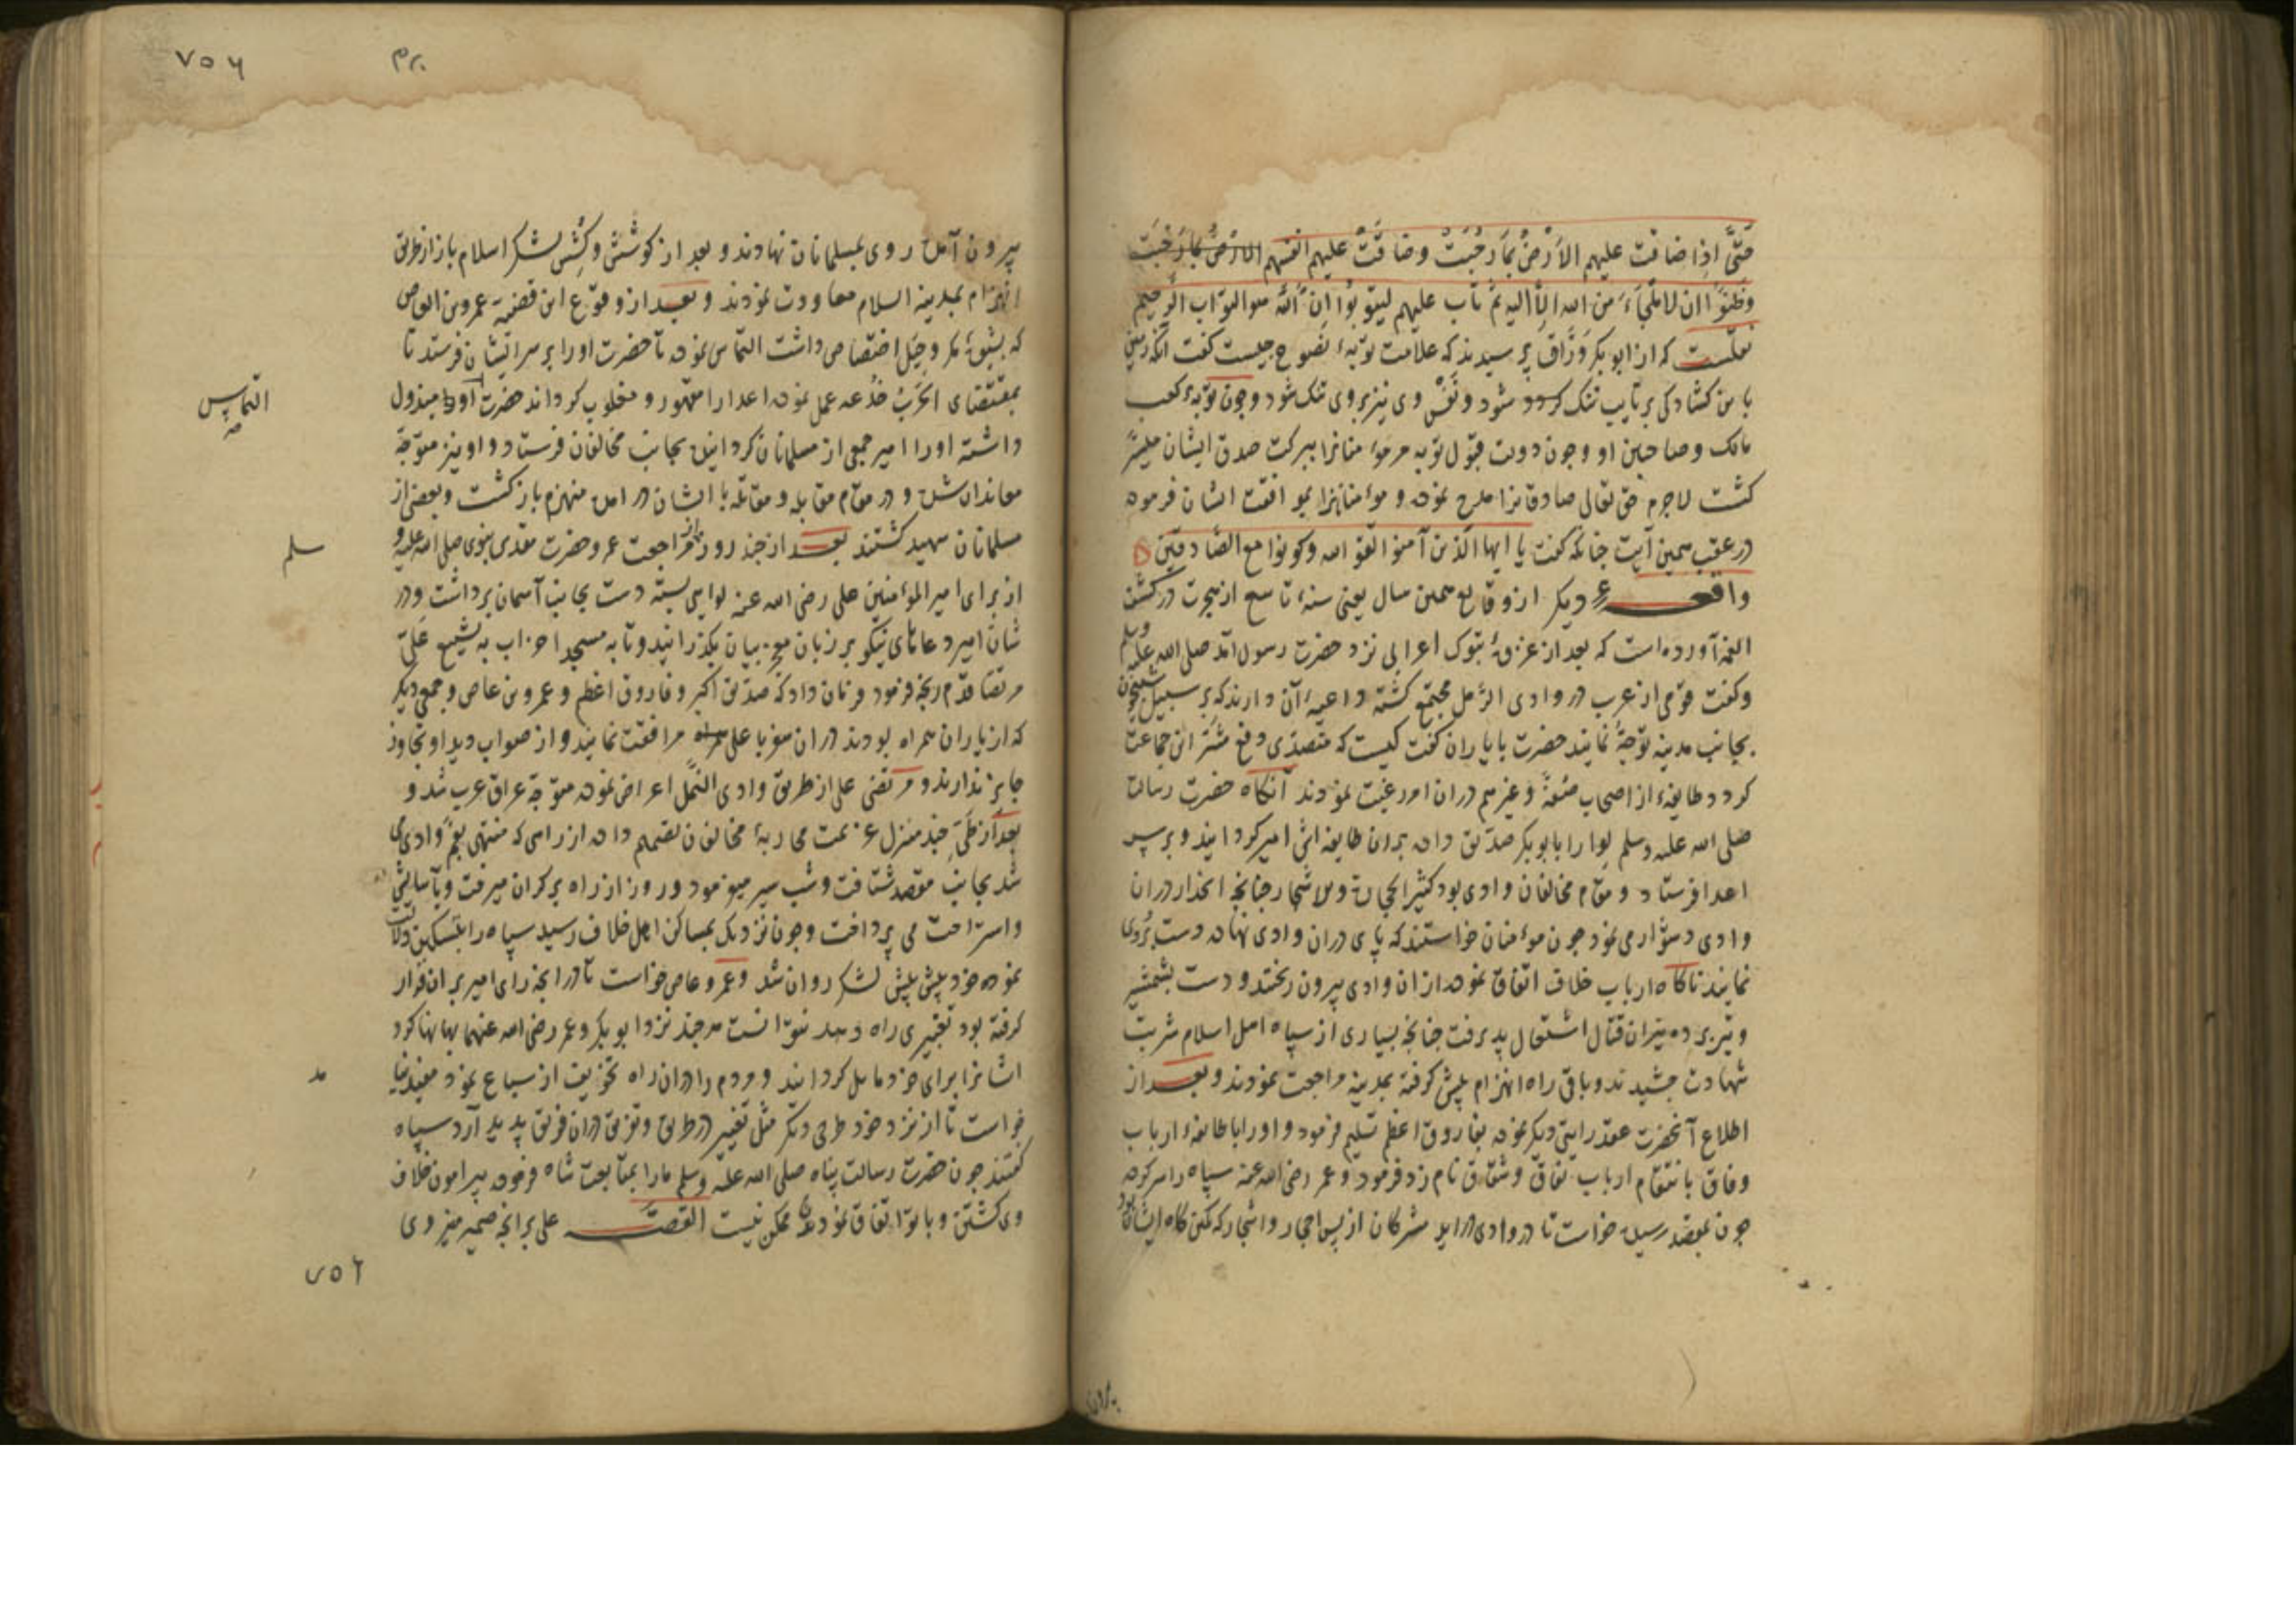 حَتَّى اِذا ضاقت علیهم الاَرْضُ بِمَا رَحُبَتْ وضاقَتْ علیهم انفسهم الارض بما رحبت
وظَنّوُا ان لا ملجاءَ من الله اِلاّ الیه ثم تاب علیهم لیتوبُوُا اِنّ الله هو التواب الرحیم
نقلست که از ابو بکر وَرَّاق پرسیدند که علامت توبهٔ نصوح چیست کفت آنکه زمین
با من کشادکی بر تایب تنک کردد شود ونَفْس وی نیز بر وی تنک شود وچون توبهٔ کعب
مالک وصاحبین او وچون دولت قبول توبه مر مؤمنانرا ببرکت صدق ایشان میسّر
کشت لاجرم حق تعالی صادقانرا مدح نموده ومؤمنانرا بموافقت ایشان فرموده
در عقب همین آیت چنانکه کفت یا ایها الّذین آمنوا اتقوا الله وکونوا مع الصّادقین
واقعـهٔ دیکر از وقایع همین سال یعنی سنهٔ تاسع از هجرت در کشف
الغمه آورده است که بعد از غزوهٔ تبوک اعرابی نزد حضرت رسول آمد صلی الله علیه وسلم
وکفت قومی از عرب در وادی الرَّمل مجتمع کشته داعیهٔ آن دارند که بر سبیل شبیخون
بجانب مدینه توجّه نمایند حضرت با یاران کفت کیست که متصدّی دفع شَرّ این جماعت
کردد طایفهٔ از اصحاب صُفّه وغیرهم در ان امر رغبت نمودند آنکاه حضرت رسالت
صَلی الله علیه وسلم لِوا را بابوبکر صدّیق داده بر ان طایفه اش امیر کردانید وبر سر
اعدا فرستاد ومقام مخالفان وادی بود کثیر الحجارة والاشجار چنانچه انحدار در ان
وادی دشوار می نمود چون مؤمنان خواستند که پای در ان وادی نهاده دست بُردی
نمایند ناکاه ارباب خلاف اتفاق نموده از ان وادی بیرون ریختند ودست بشمشیر
وتیر برده نیران قتال اشتعال پذیرفت چنانچه بسیاری از سپاه اهل اسلام شربت
شهادت چشیدند وباقی راه انهزام پیش کرفته بمدینه مراجعت نمودند وبعـد از
اطلاع آنحضرت عقد رایتی دیکر نموده بفاروق اعظم تسلیم فرمود واورا با طایفهٔ ارباب
وفاق بانتقام ارباب نفاق وشقاق نام زد فرمود وعمر رضی الله عنه سپاه را سر کرده
چون بمقصد رسید خواست تا در وادی در اید مشرکان از پس احجار واشجار که کمین کاه ایشان بود
بیرون
۷۵۶
بیرون آمده روی بمسلمانان نهادند وبعد از کوشش وکُشِش لشکر اسلام باز از طریق
انهزام بمدینة السلام معاودت نمودند وبعـد از وقوع این قضیّه عمرو بن العاص
که بشیوهٔ مکر وحِیَل اختصاص داشت التماس نموده تا حضرت اورا بر سر ایشان فرستد تا
بمقتضای الحَرْبُ خُدْعه عمل نموده اعدا را مقهور ومغلوب کرداند حضرت اورا مبذول
التماس
داشته اورا امیر جمعی از مسلمانان کردانیده بجانب مخالفان فرستاد واو نیز متوجّه
معاندان شده ودر مقام مقابله ومقاتله با ایشان در امده منهزم باز کشت وبعضی از
مسلمانان شهید کشتند بعـد از چند روز از مراجعت عمرو حضرت مقدس نبوی صلی الله علیه و
سلم
از برای امیر المؤمنین علی رضی الله عنه لوایی بسته دست بجانب آسمان برداشت ودر
شان امیر دعاهای نیکو بر زبان معجز بیان بکذرانید وتا به مسجد احزاب به تشییع عَلیّ
مرتضا قدَم رنجه فرمود وفرمان داد که صدّیق اکبر وفاروق اعظم وعمرو بن عاص وجمعی دیکر
که از یاران همراه بودند در ان سفر با علی همراه مرافقت نمایند واز صواب دید او تجاوز
جایز ندارند ومرتضی علی از طریق وادی الرّمل اعراض نموده متوجّه عراق عرب شد و
بعد از طَیّ چند منزل عزیمت محاربهٔ مخالفان تصمیم داده از راهی که منتهی بفم وادی می
شد بجانب مقصد شتافت وشب سیر میفرمود وروز از راه بر کران میرفت وبآسایش
واستراحت می پرداخت وچون نزدیک بمساکن اهل خلاف رسید سپاه را بتسکین دلالت
نموده خود پیش پیش لشکر روان شد وعمرو عاص خواست تا در انچه رای امیر بر ان قرار
کرفته بود تغییری راه دهد نتوانست هر چند نزد ابو بکر وعمر رضی الله عنهما بهانها کرد
ایشانرا برای خود مایل کردانید ومردم را در ان راه تخویف از سباع نمود مفید نیا
مد
خواست تا از نزد خود طرحی دیکر مثل تغییر در طریق وتفریق در ان فریق پدید آرد سپاه
کفتند چون حضرت رسالت پناه صلی الله علیه وسلم ما را بمتابعت شاه فرموده پیرامون خلاف
وی کشتن وبا تو اتفاق نمودن ممکن نیست القصّـه علی بر انچه ضمیر منیر وی
۷۵۶